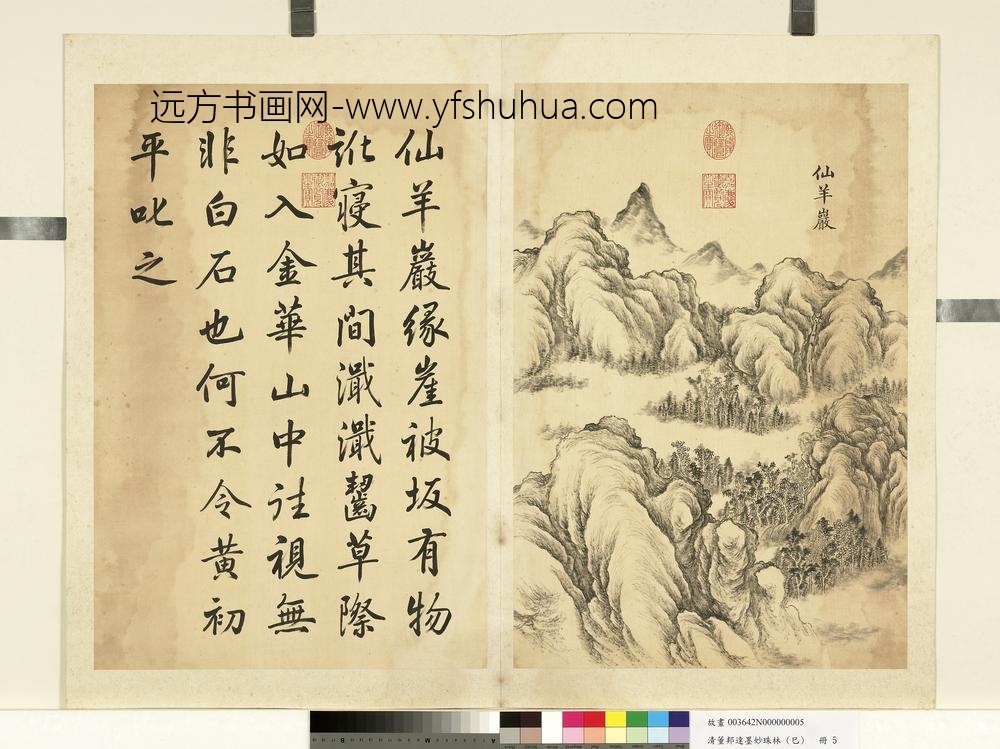 远方书画网-www.yfshuhua.com
仙羊巖
仙羊巖緣崖被坂有物
訛寢其間濈濈齧草際
如入金華山中往視無
非白石也何不令黃初
平叱之
故畫 003642N000000005
清董邦達墨妙珠林（巳） 冊 5